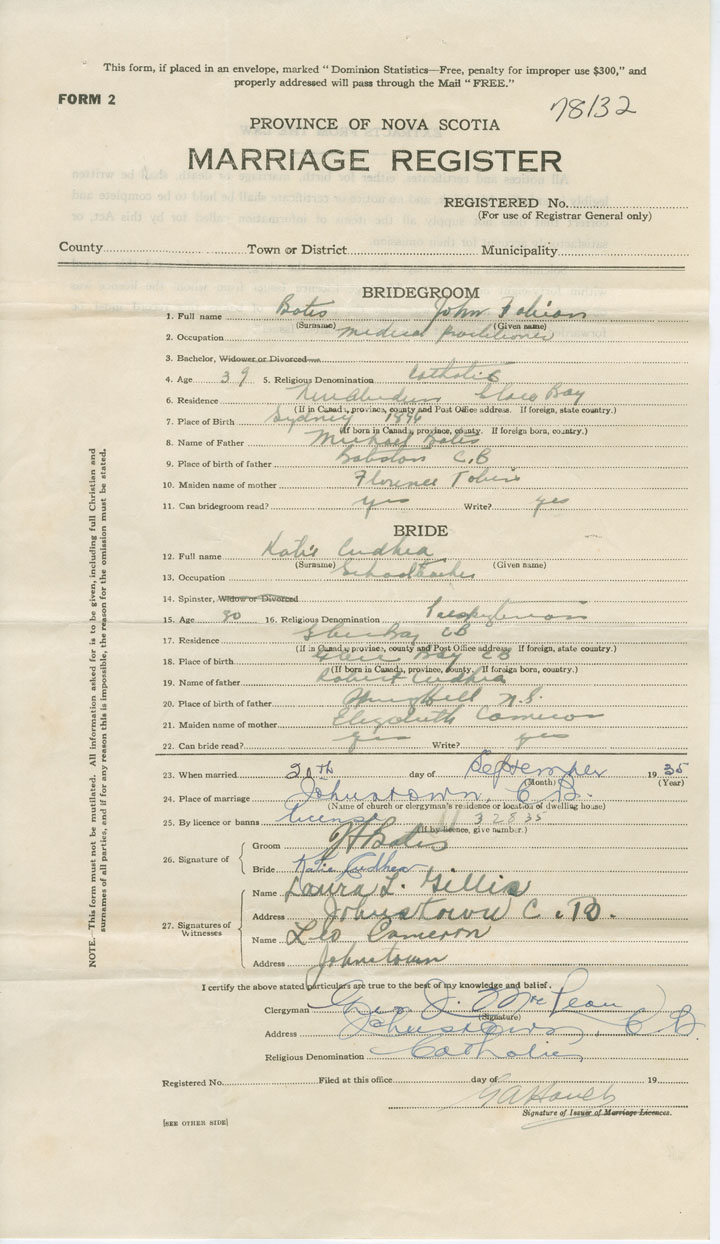 This form, if placed in an envelope, marked " Dominion Statistics—Free, penalty for improper use $300," and
properly addressed will pass through the Mail " FREE."
FORM 2
78132
PROVINCE OF NOVA SCOTIA
MARRIAGE REGISTER
REGISTERED No.
(For use of Registrar General only)
County Town or District Municipality
BRIDEGROOM
1. Full name Bates John Fabian
(Surname) (Given name)
2. Occupation medical Practitioner
3. Bachelor, Widower or Divorced
4. Age 39 5. Religious Denomination Catholic
6. Residence New Aberdeen Glace Bay
(If in Canada, province, county and Post Office address. If foreign, state country.)
7. Place of Birth Sydney 1896
(If born in Canada, province, county. If foreign born, country.)
8. Name of Father Michael Bates
9. Place of birth of father C.B
10. Maiden name of mother Florence Tobin
11. Can bridegroom read? yes Write? yes
BRIDE
12. Full name Katie Cudhea
(Surname) (Given name)
13. Occupation Schoolteacher
14. Spinster, Widow or Divorced
15. Age 30 16. Religious Denomination Presbyterian
17. Residence Glace Bay CB
(If in Canada, province, county and Post Office address. If foreign, state country.)
18. Place of birth Glace Bay CB
(If born in Canada, province, county. If foreign born, country.)
19. Name of father Robert Cudhea
20. Place of birth of father N.S.
21. Maiden name of mother Elizabeth Cameron
22. Can bride read? yes Write? yes
23. When married 20th day of September 1935
(Month) (Year)
24. Place of marriage Johnstown, C.B.
(Name of church or clergyman's residence or location of dwelling house)
25. By licence or banns license 32835
(If by licence, give number.)
26. Signature of
Groom Bates
Bride Katie Cudhea
27. Signatures of Witnesses
Name Laura L. Gillis
Address Johnstown C.B.
Name Leo Cameron
Address Johnstown
I certify the above stated particulars are true to the best of my knowledge and belief.
Clergyman Geo. J. McLean
(Signature)
Address Johnstown, C.B.
Religious Denomination Catholic
Registered No. Filed at this office day of 19
Signature of Issuer of Marriage Licences.
[SEE OTHER SIDE]
NOTE.—This form must not be mutilated. All information asked for is to be given, including full Christian and
surnames of all parties, and if for any reason this is impossible, the reason for the omission must be stated.